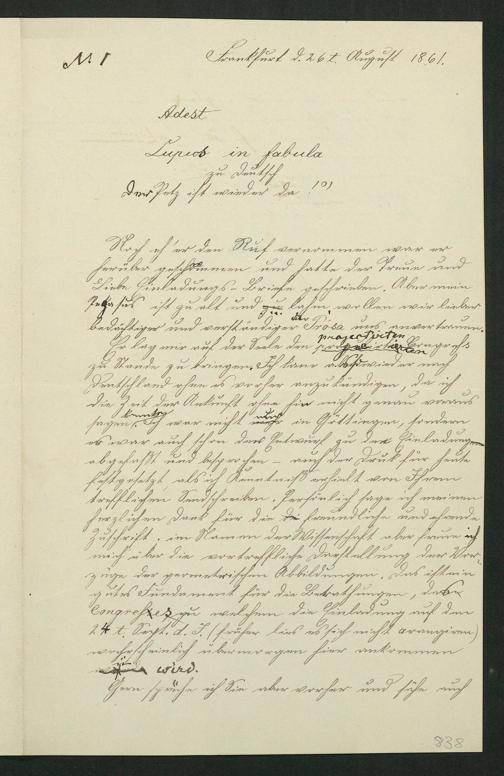 № 1
Frankfurt d. 26 t. August 1861.
Adest
Lupus in fabula
zu Deutsch
Der Petz ist wieder da !°)
Noch eh' er den Ruf vernommen war er
herüber geschwommen und hatte der Treue und
Liebe Einladungs-Briefe geschrieben. Aber mein
Pegasus ist zu alt und zu lahm wollen wir lieber
bedächtiger und verständiger Prosa uns anvertrauen.
Es lag mir auf der Seele den projectirten Congress
zu Stande zu bringen. Ich kam also wieder nach
Deutschland ohne es vorher anzukündigen, da ich
die Zeit der Ankunft ohne hin nicht genau voraus
sagen konnte. Ich war nicht nur in Göttingen, sondern
es war auch schon der Entwurf zu den Einladungen
abgefaßt und besprochen – auch der Druck für heute
festgesetzt als ich Kenntniß erhielt von Ihrem
trefflichen Sendschreiben. Persönlich sage ich meinen
herzlichen Dank für die freundliche und ehrende
Zuschrift, im Namen der Wissenschaft aber freue ich
mich über die vortreffliche Darstellung der Vor-
züge der geometrischen Abbildungen. Das ist ein
gutes Fundament für die Berathungen, des
Congresses zu welchem die Einladung auf den
24 t. Sept. d. J. (früher lies es sich nicht arangiren)
wahrscheinlich übermorgen hier ankommen
wird.
Gern spräche ich Sie aber vorher und sähe auch
838